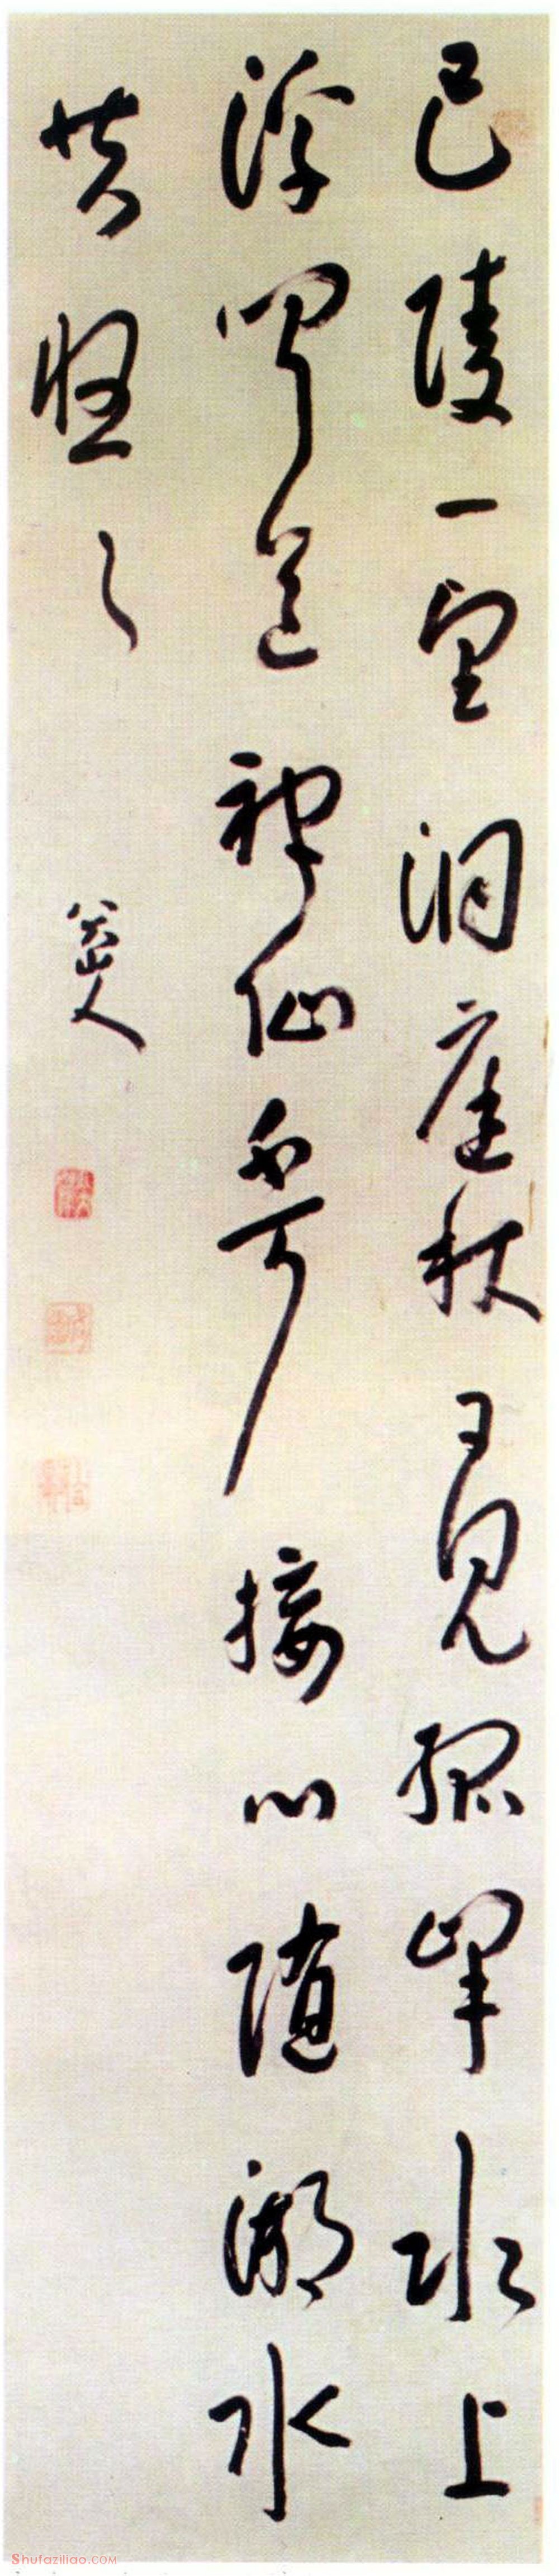 巴陵一望洞庭秋日見孤峰水上
浮聞道神仙不可接心随湖水
共悠々
八大山人
Shufaziliao.COM